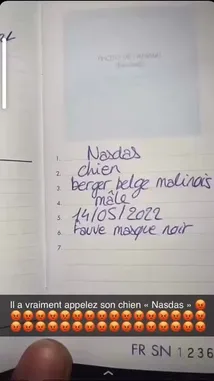 1. Nasdas
2. chien
3. berger belge malinois
4. mâle
5. 14/05/2022
6. fauve masque noir
7.
Il a vraiment appelez son chien « Nasdas » 😡
😡😡😡😡😡😡😡😡😡😡😡😡😡😡
😡😡😡😡😡😡😡😡😡😡😡😡😡😡
FR SN 1236